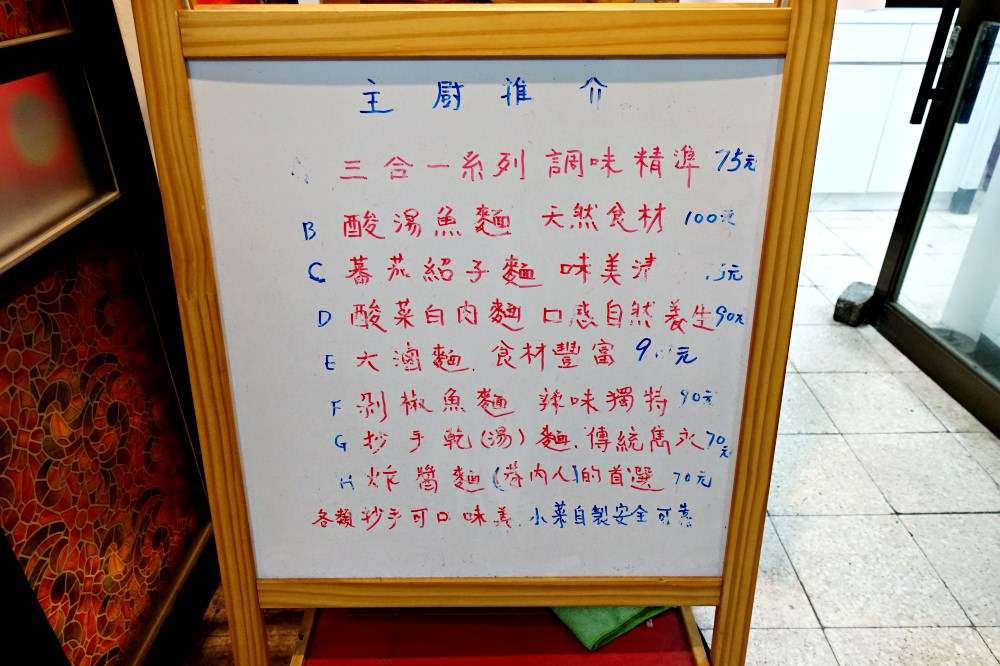 主廚推介
三合一系列 調味精準 75元
B 酸湯魚麵 天然食材 100元
C 蕃茄紹子麵 味美清 元
D 酸菜白肉麵 口感自然養生 90元
E 大滷麵. 食材豐富 9 元
F 剁椒魚麵 辣味獨特 90元
G 抄手乾(湯)麵. 傳統雋永 70元
H 炸醬麵(眷內人)的首選 70元
各類抄手可口味美. 小菜自製安全可靠